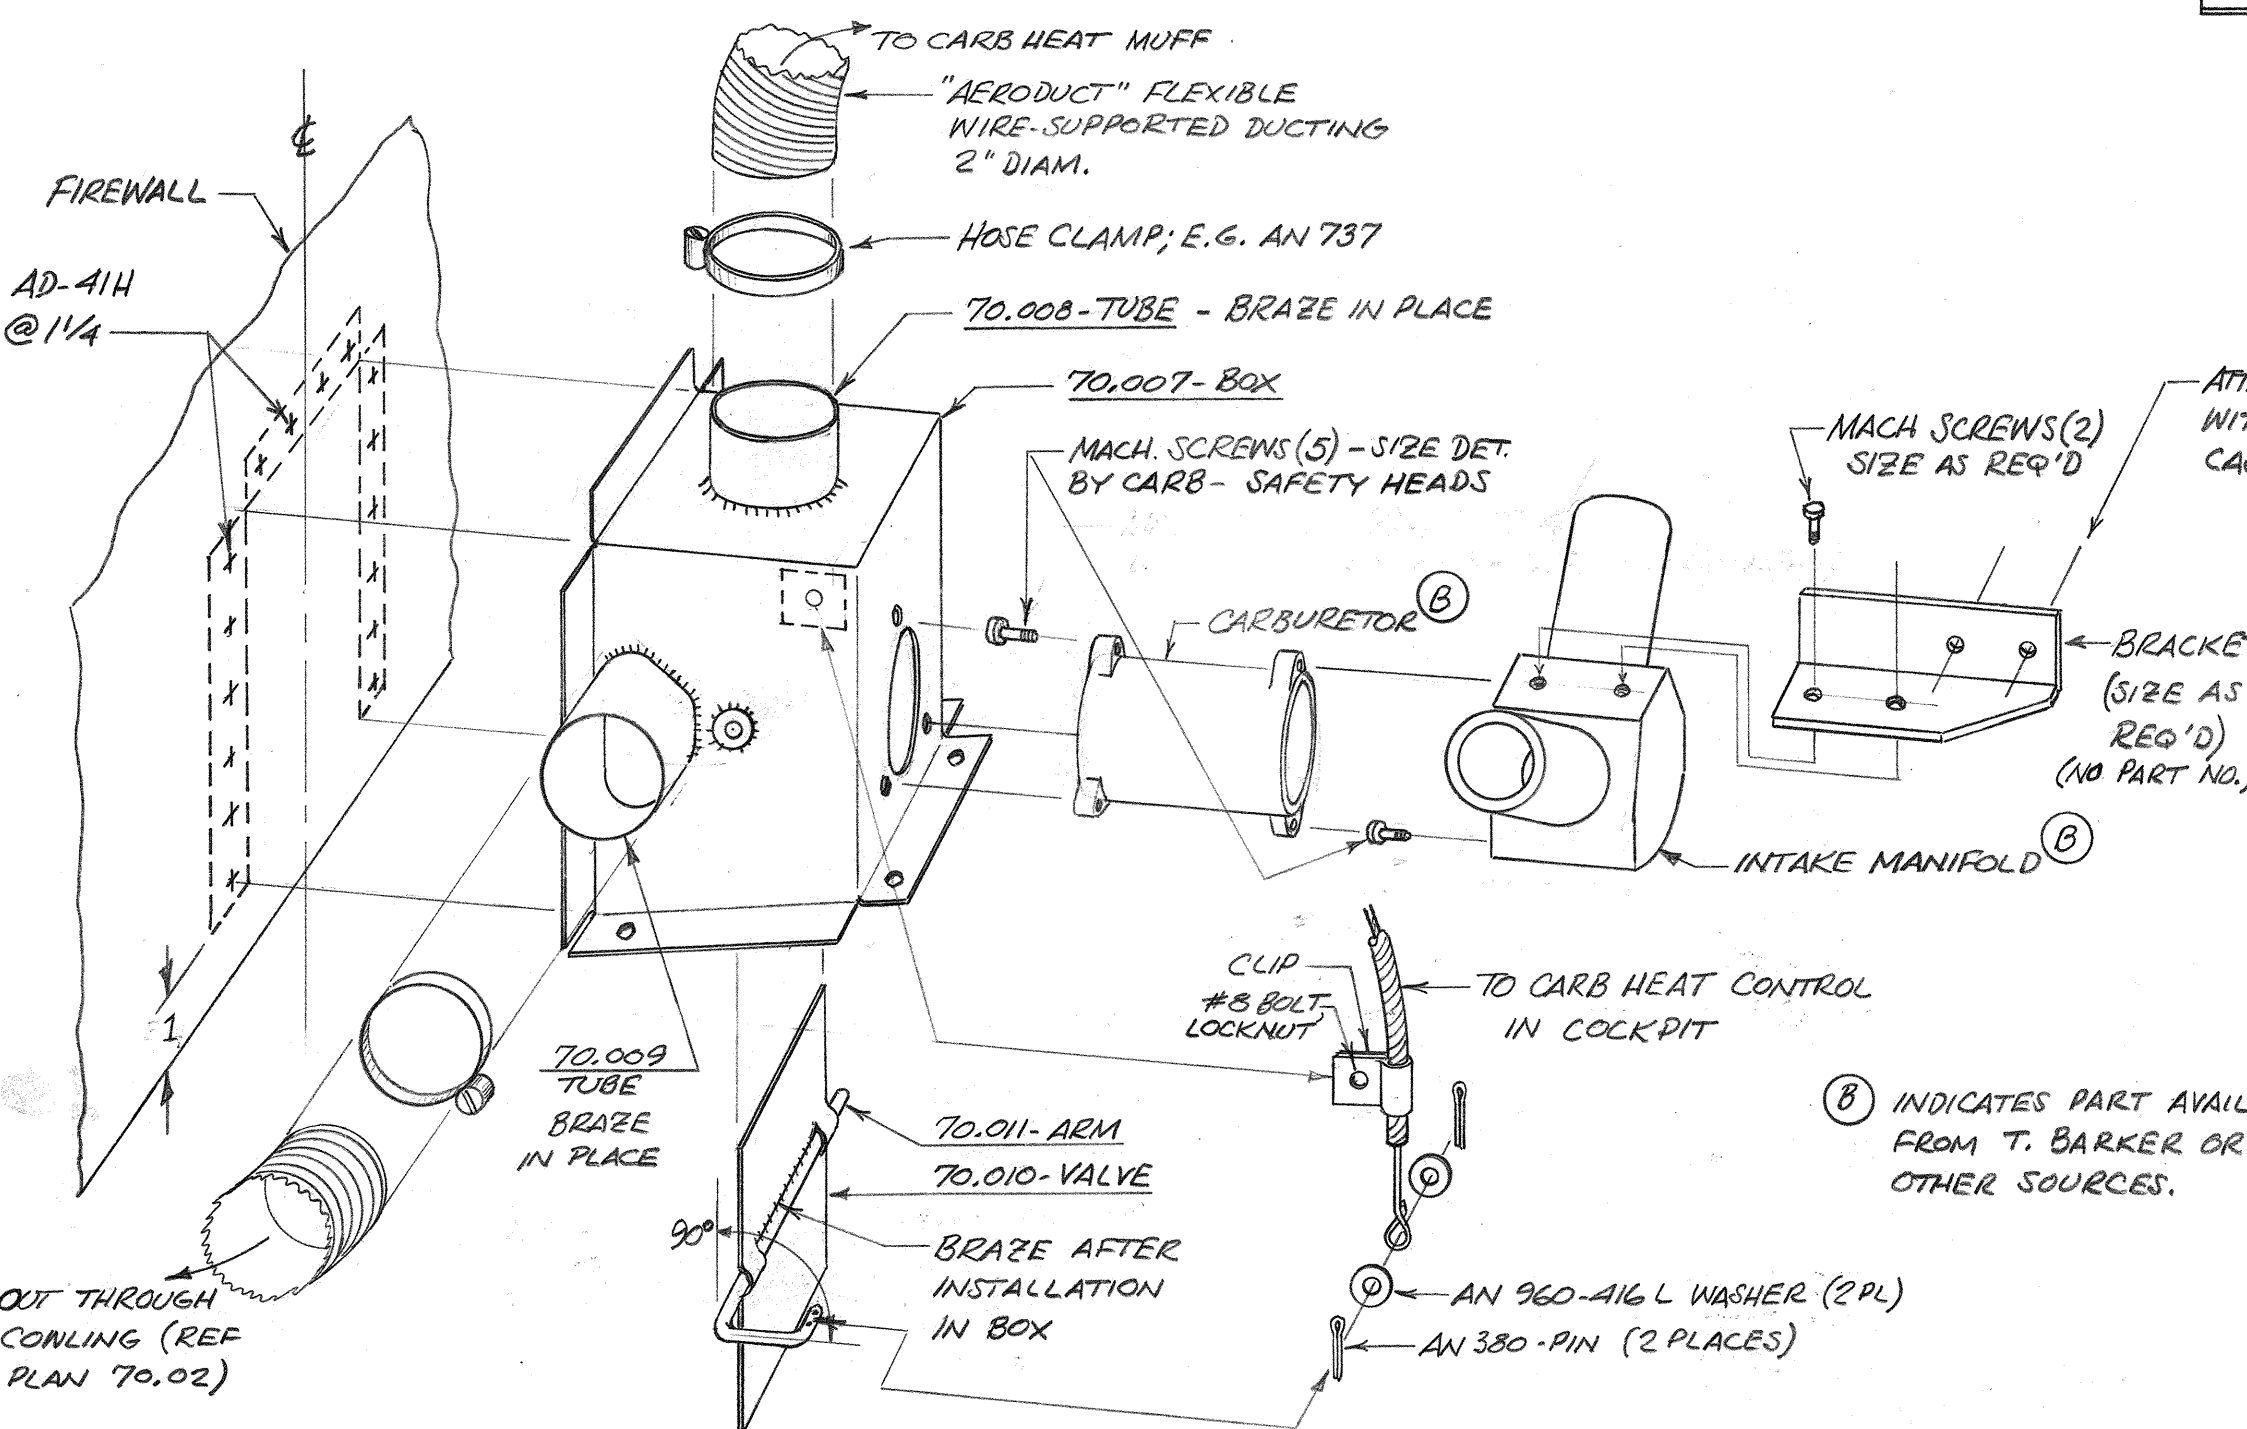 TO CARB HEAT MUFF
"AERODUCT" FLEXIBLE
WIRE-SUPPORTED DUCTING
2" DIAM.
℄
FIREWALL
HOSE CLAMP; E.G. AN 737
AD-41H
@ 1 1/4
70.008-TUBE - BRAZE IN PLACE
70.007-BOX
MACH. SCREWS (5) - SIZE DET.
BY CARB - SAFETY HEADS
MACH SCREWS (2)
SIZE AS REQ'D
CARBURETOR B
BRACKE
(SIZE AS
REQ'D)
(NO PART NO.)
INTAKE MANIFOLD B
CLIP
#8 BOLT
LOCKNUT
TO CARB HEAT CONTROL
IN COCKPIT
1
70.009
TUBE
BRAZE
IN PLACE
70.011-ARM
70.010-VALVE
90°
BRAZE AFTER
INSTALLATION
IN BOX
B INDICATES PART AVAIL
FROM T. BARKER OR
OTHER SOURCES.
AN 960-416 L WASHER (2 PL)
AN 380-PIN (2 PLACES)
OUT THROUGH
COWLING (REF
PLAN 70.02)